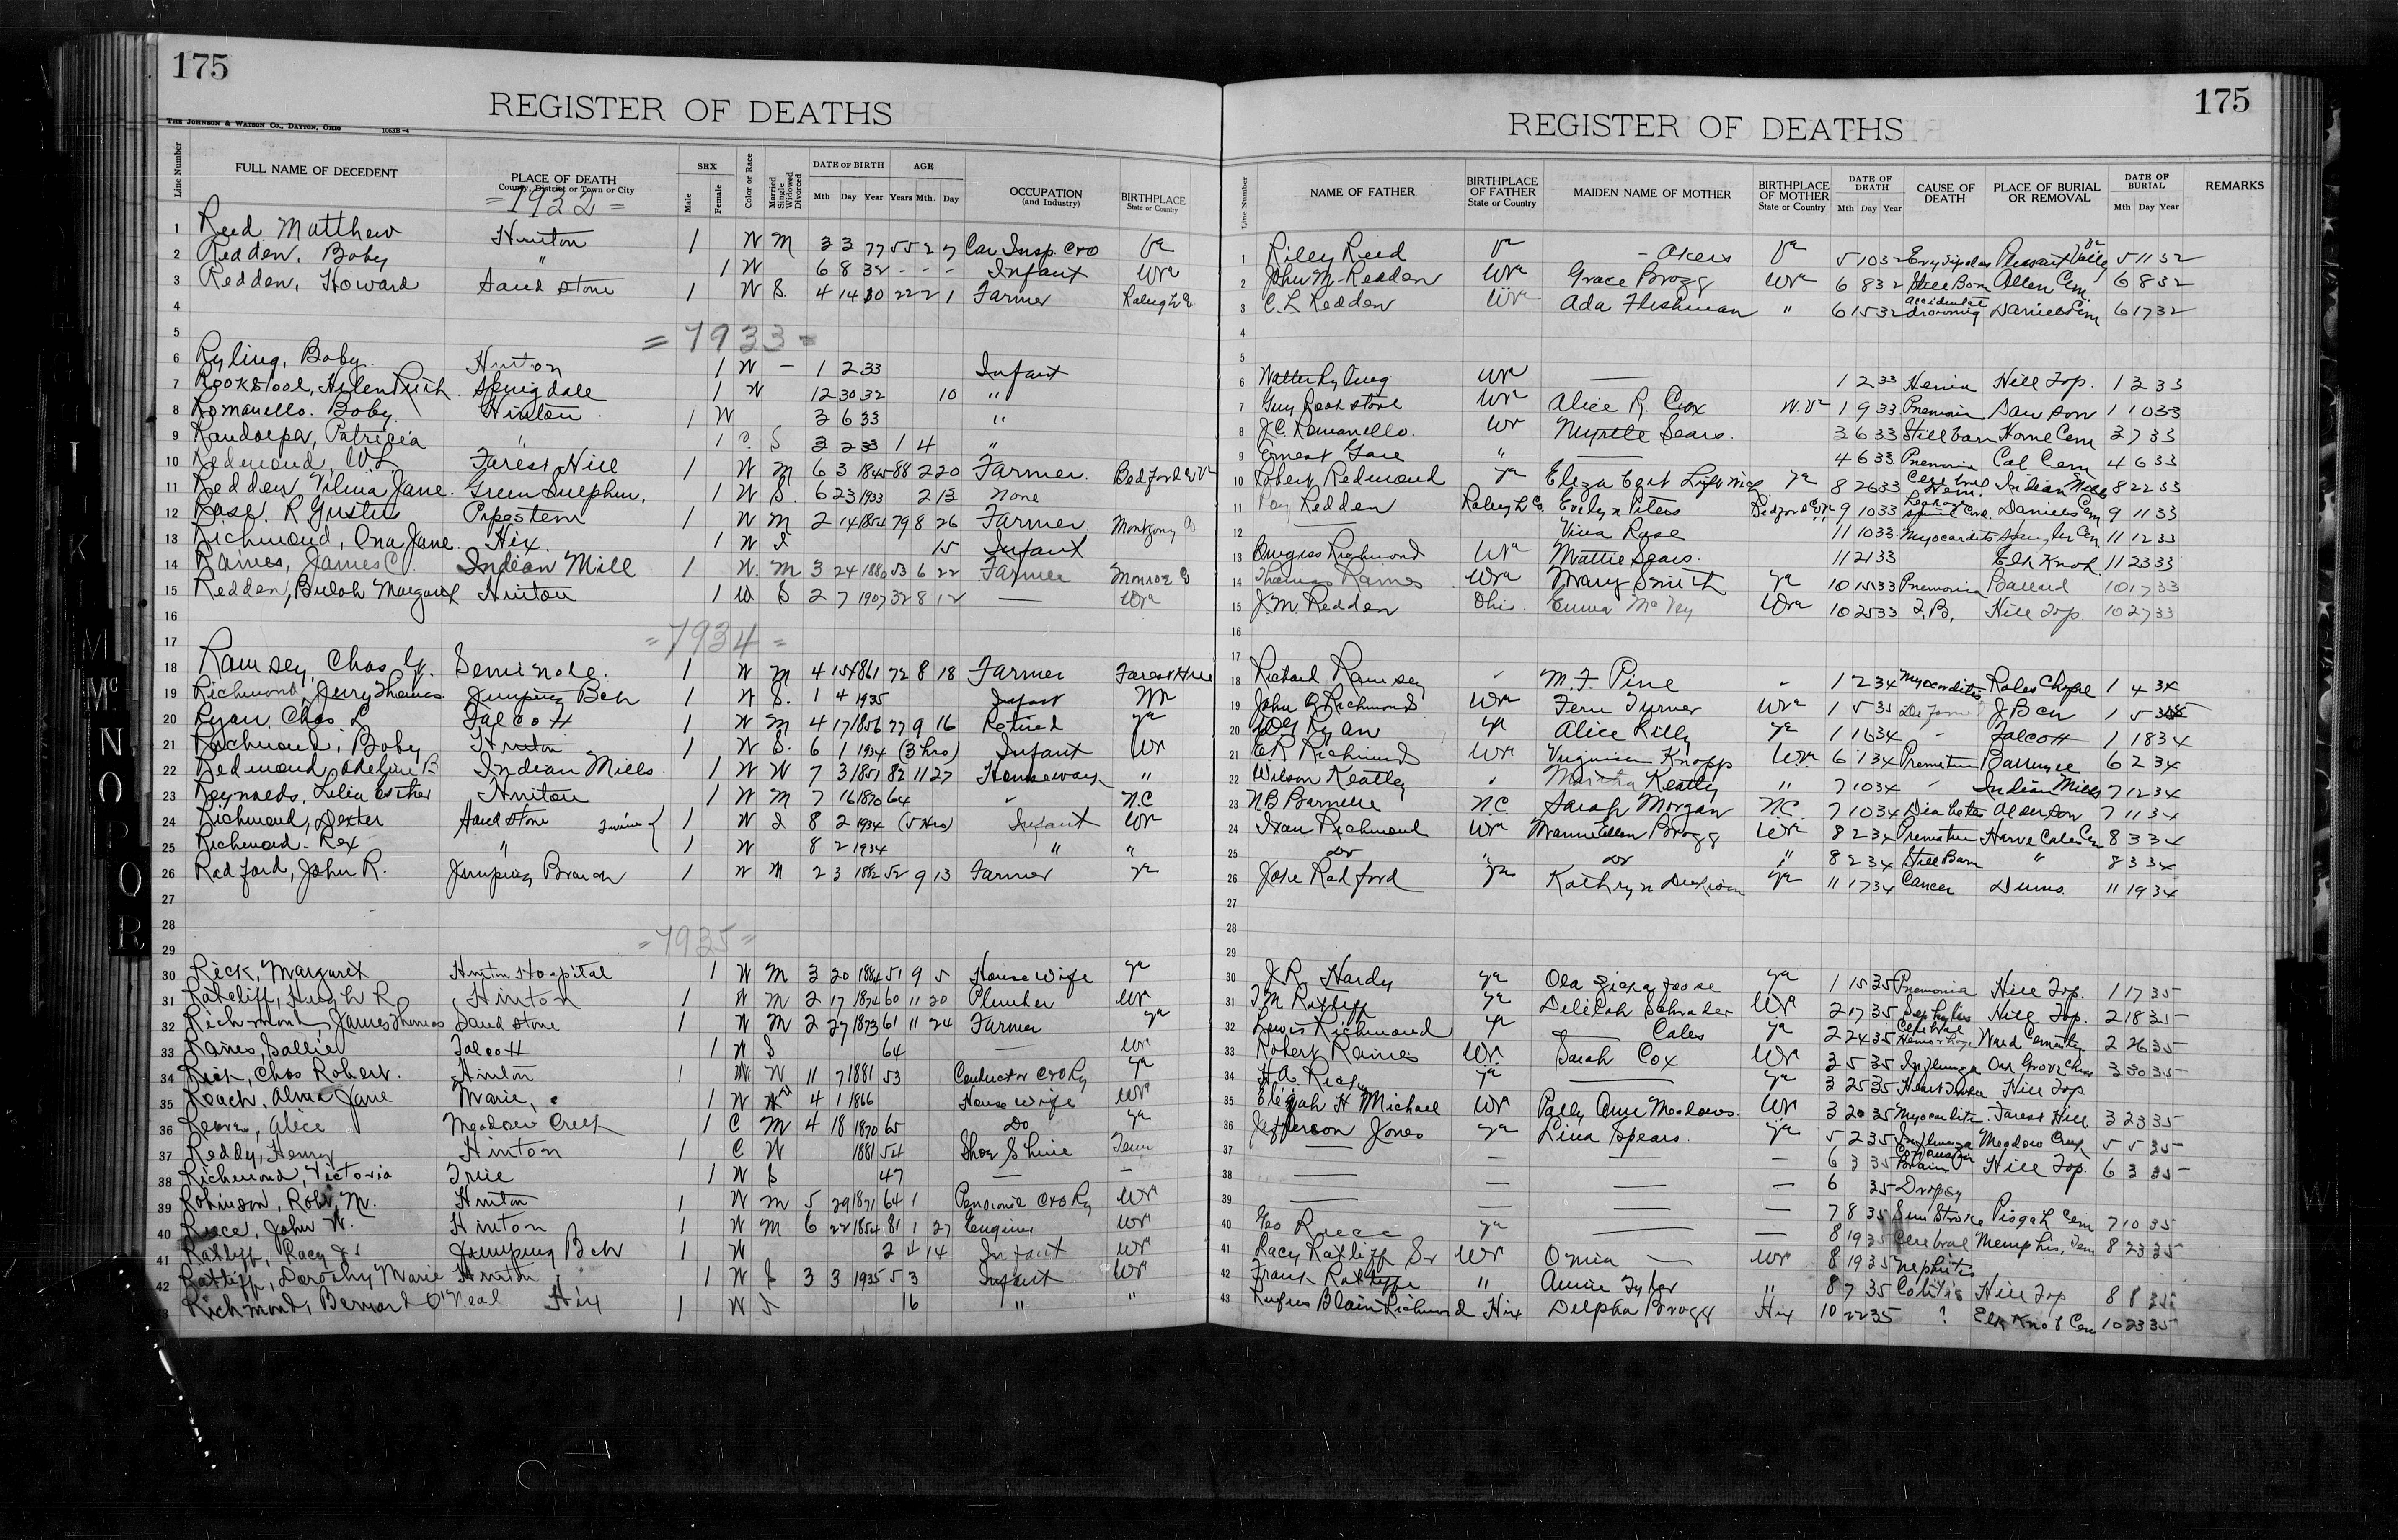 175
REGISTER OF DEATHS
THE JOHNSON & WATSON CO., DAYTON, OHIO 1063B-4
Line Number FULL NAME OF DECEDENT PLACE OF DEATH County, District or Town or City SEX Male Female Color or Race Married Single Widowed Divorced DATE OF BIRTH Mth Day Year AGE Years Mth. Day OCCUPATION (and Industry) BIRTHPLACE State or Country
=1932=
1 Reed Matthew Hinton 1 W M 3 3 77 55 2 7 Car Insp. C&O Va
2 Redden, Baby " 1 W 6 8 32 - - - Infant Wva
3 Redden, Howard Sand Stone 1 W S. 4 14 10 22 2 1 Farmer Raleigh Co
4
5 =1933=
6 Ryling, Baby Hinton 1 W - 1 2 33 Infant
7 Rookstool, Helen Ruth Springdale 1 W 12 30 32 10 "
8 Romanello. Baby Hinton 1 W 3 6 33 "
9 Randolph, Patricia " 1 C. S 3 2 33 1 4 "
10 Redmond, W.L. Forest Hill 1 W M 6 3 1845 88 2 20 Farmer. Bedford Co Va
11 Redden Vilina Jane. Green Sulphur, 1 W S. 6 23 1933 2 13 none
12 Rose. R Gustus Pipestem 1 W M 2 14 1854 79 8 26 Farmer Montgomy Co
13 Richmond, Ona Jane. Hix. 1 W S 15 Infant
14 Raines, James C. Indian Mill 1 W. M 3 24 1880 53 6 22 Farmer Monroe Co
15 Redden, Bulah Margaret Hinton 1 W S 2 7 1907 32 8 12 — Wva
16
17 =1934=
18 Ramsey, Chas. Seminole. 1 W M 4 15 1861 72 8 18 Farmer Forest Hill
19 Richmond, Jerry Thomas. Jumping Bch 1 W S. 1 4 1935 Infant Wv
20 Ryan, Chas L Talcott 1 W M 4 17 1856 77 9 16 Retired Va
21 Richmond, Baby Hinton 1 W S. 6 1 1934 (3 hrs) Infant Wv
22 Redmond, Adeline B Indian Mills 1 W W 7 3 1851 82 11 27 "
23 Reynolds, Lelia Esther Hinton 1 W M 7 16 1870 64 " N.C
24 Richmond, Dexter Sand stone Twins { 1 W S 8 2 1934 (5 Hrs) Infant Wv
25 Richmond - Rex " 1 W 8 2 1934 " "
26 Radford, John R. Jumping Branch 1 W M 2 3 1882 52 9 13 Farmer Va
27
28
29 =1935=
30 Rick, Margaret Hinton Hospital 1 W M 3 20 1884 51 9 5 House wife Va
31 Ratcliff, Hugh R. Hinton 1 W M 2 17 1874 60 11 20 Plumber Wv
32 Richmond, James Thomas Sand stone 1 W M 2 27 1873 61 11 24 Farmer Va
33 Raines, Sallie Talcott 1 W S 64 — Wv
34 Rick, Chas Robert. Hinton 1 W W 11 7 1881 53 Conductor C&O Ry Va
35 Roach, Alma Jane Marie, 1 W 4 1 1866 House wife Wv
36 Alice Meadow Creek 1 C M 4 18 1870 65 Do Va
37 Reddy, Henry Hinton 1 C W 1881 54 Shoe Shine Tenn
38 Richmond, Victoria True 1 W S 47 — —
39 Robinson, Robt. M. Hinton 1 W M 5 29 1871 64 1 C&O Ry Wv
40 Reece, John W. Hinton 1 W M 6 22 1854 81 1 27 Engineer Wva
41 Ratliff, Racy Jr Jumping Bch 1 W 2 4 14 Infant Wva
42 Ratliff, Dorothy Marie Hinton 1 W S 3 3 1935 5 3 Infant Wv
43 Richmond, Bernard O'Neal Hix 1 W S 16 " "
175
REGISTER OF DEATHS
Line Number NAME OF FATHER BIRTHPLACE OF FATHER State or Country MAIDEN NAME OF MOTHER BIRTHPLACE OF MOTHER State or Country DATE OF DEATH Mth Day Year CAUSE OF DEATH PLACE OF BURIAL OR REMOVAL DATE OF BURIAL Mth Day Year REMARKS
1 Riley Reed Va - Akers Va 5 10 32 Erysipelas Pleasant Valley Va 5 11 32
2 John M. Redden Wva Grace Bragg Wv 6 8 32 Still Born Allen Cem. 6 8 32
3 C. L Redden Wva Ada Fleshman " 6 15 32 accidental drowning Daniels Cem 6 17 32
4
5
6 Walter Ryling Wva — 1 2 33 Hernia Hill Top. 1 3 33
7 Guy Rookstool Wv Alice R. Cox W. Va 1 9 33 Pnemonia Dawson 1 10 33
8 J.C. Romanello. Wv Myrtle Sears. 3 6 33 Still born Home Cem 3 7 33
9 Ernest Gore " — 4 6 33 Pnemonia Col Cem 4 6 33
10 Robert Redmond Va Eliza Va 8 26 33 Cerebral Hem. Indian Mills 8 22 33
11 Redden Raleigh Co. Evelyn Peters 9 10 33 Daniels Cem 9 11 33
12 — Vina Rose 11 10 33 Myocarditis Cem 11 12 33
13 Burgess Richmond Wva Mattie Sears. 11 21 33 Elk Knob. 11 23 33
14 Thomas Raines Wva Mary Smith Va 10 15 33 Pnemonia Ballard 10 17 33
15 J.M. Redden Ohio. Emma McVey Wva 10 25 33 T.B. Hill Top. 10 27 33
16
17
18 Richard Ramsey - M. F. Pine - 1 2 34 Myocarditis Roles Chapel 1 4 34
19 John Richmond Wva Fern Turner Wva 1 5 35 J Bch 1 5 35
20 Ryan Va Alice Kelly Va 1 16 34 - Talcott 1 18 34
21 E.R Richmond Wva Virginia Knapp Wva 6 1 34 Premature 6 2 34
22 Wilson Keatley " Martha Keatley " 7 10 34 - Indian Mills 7 12 34
23 N B Barnette N.C. Sarah Morgan N.C. 7 10 34 Diabetes Alderson 7 11 34
24 Ivan Richmond Wva Ellen Bragg Wva 8 2 34 Premature Harve Cales Cem 8 3 34
25 Do " Do " 8 2 34 Still Born " 8 3 34
26 Jose Radford Va Kathryn Va 11 17 34 Cancer 11 19 34
27
28
29
30 J.R. Hardy Va Ola Va 1 15 35 Pnemonia Hill Top. 1 17 35
31 Ratliff Va Delilah Schrader Wva 2 17 35 Hill Top. 2 18 35
32 Lewis Richmond Va — Cales Va 2 24 35 Cerebral Ward Cemetery 2 26 35
33 Robert Raines Wv. Sarah Cox Wv 3 5 35 Influenza Oak Grove 3 30 35
34 H.A. Va — Va 3 25 35 Heart Hill Top
35 Elijah H Michael Wv Polly Ann Meadows. Wv 3 20 35 Myocarditis Forest Hill 3 23 35
36 Jefferson Jones Va Lina Spears. Va 5 2 35 Influenza Meadow Creek 5 5 35
37 — — — — 6 3 35 Brain Hill Top. 6 3 35
38 — — — — 6 35 Dropsy
39 — — — — 7 8 35 Sun Stroke Pisgah Cem 7 10 35
40 Geo Reece Va — — 8 19 35 Cerebral Memphis, Tenn 8 23 35
41 Racy Ratliff Sr Wv Omia — Wv 8 19 35 Nephritis
42 Frank Ratliffe " Annie Tyler " 8 7 35 Colitis Hill Top 8 8 35
43 Rufus Blain Richmond Hix Delpha Bragg Hix 10 22 35 ? Elk Knob Cem 10 23 35
I K M Mc N O P Q R